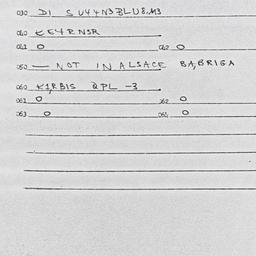 030 DI SUY+N3BLU8.M3
040 KEYRNSR
041 0 042 0
050 — NOT IN ALSACE BA,BRIGA
060 K1RBIS QPL -3
061 0 062 0
063 0 065 0